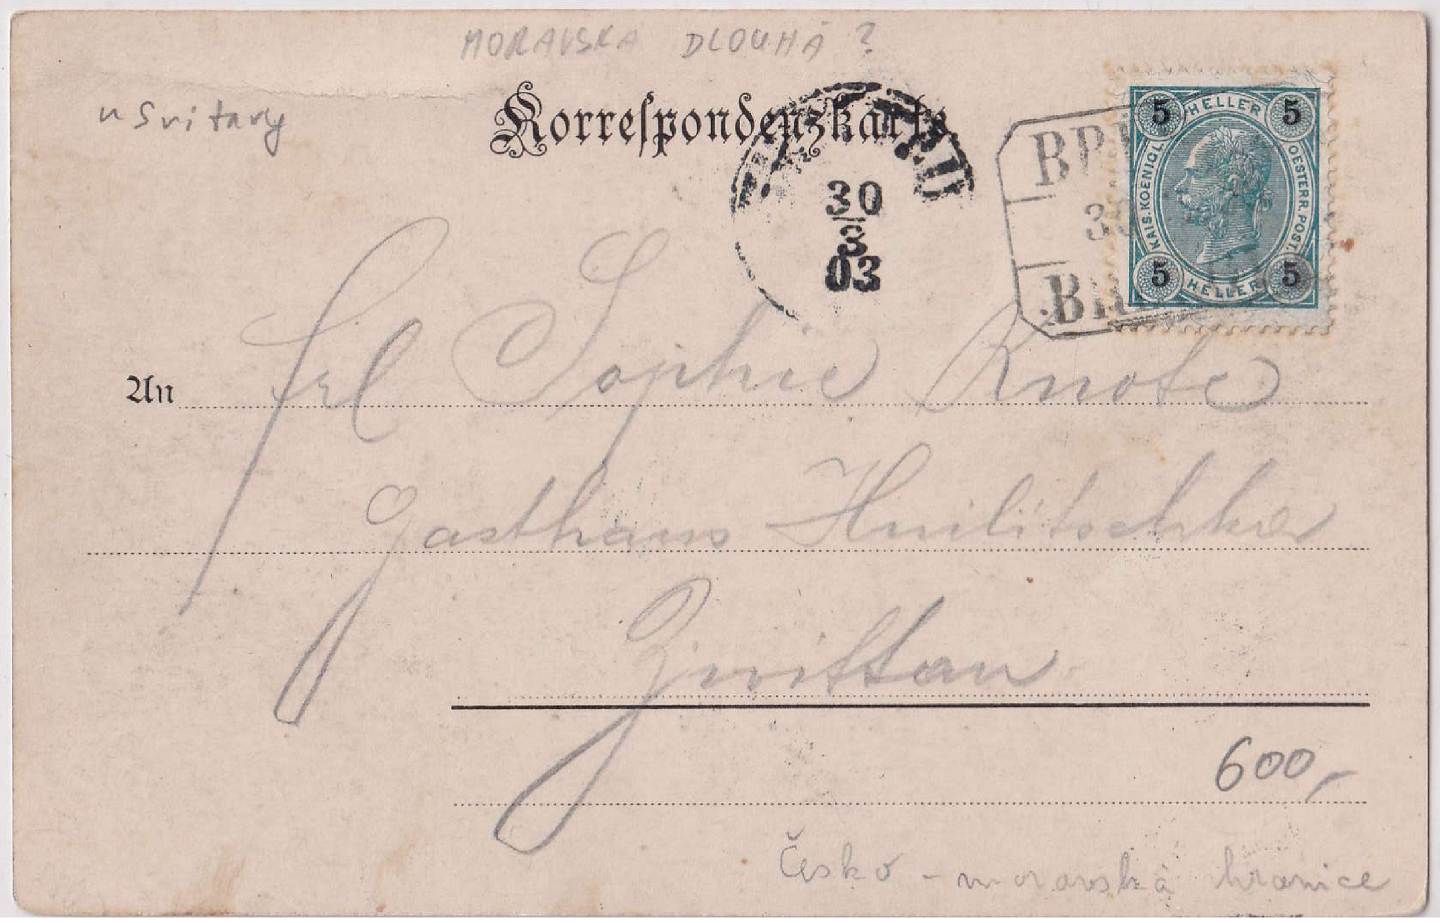 MORAVSKA DLOUHÁ ?
u Svitavy
Korrespondenzkarte
30
3
03
5 HELLER 5
KAIS. KOENIGL. OESTERR. POST.
5 HELLER 5
An Frl Sophie Knote
Gasthaus
Zwittau
600,-
Česko - moravská hranice